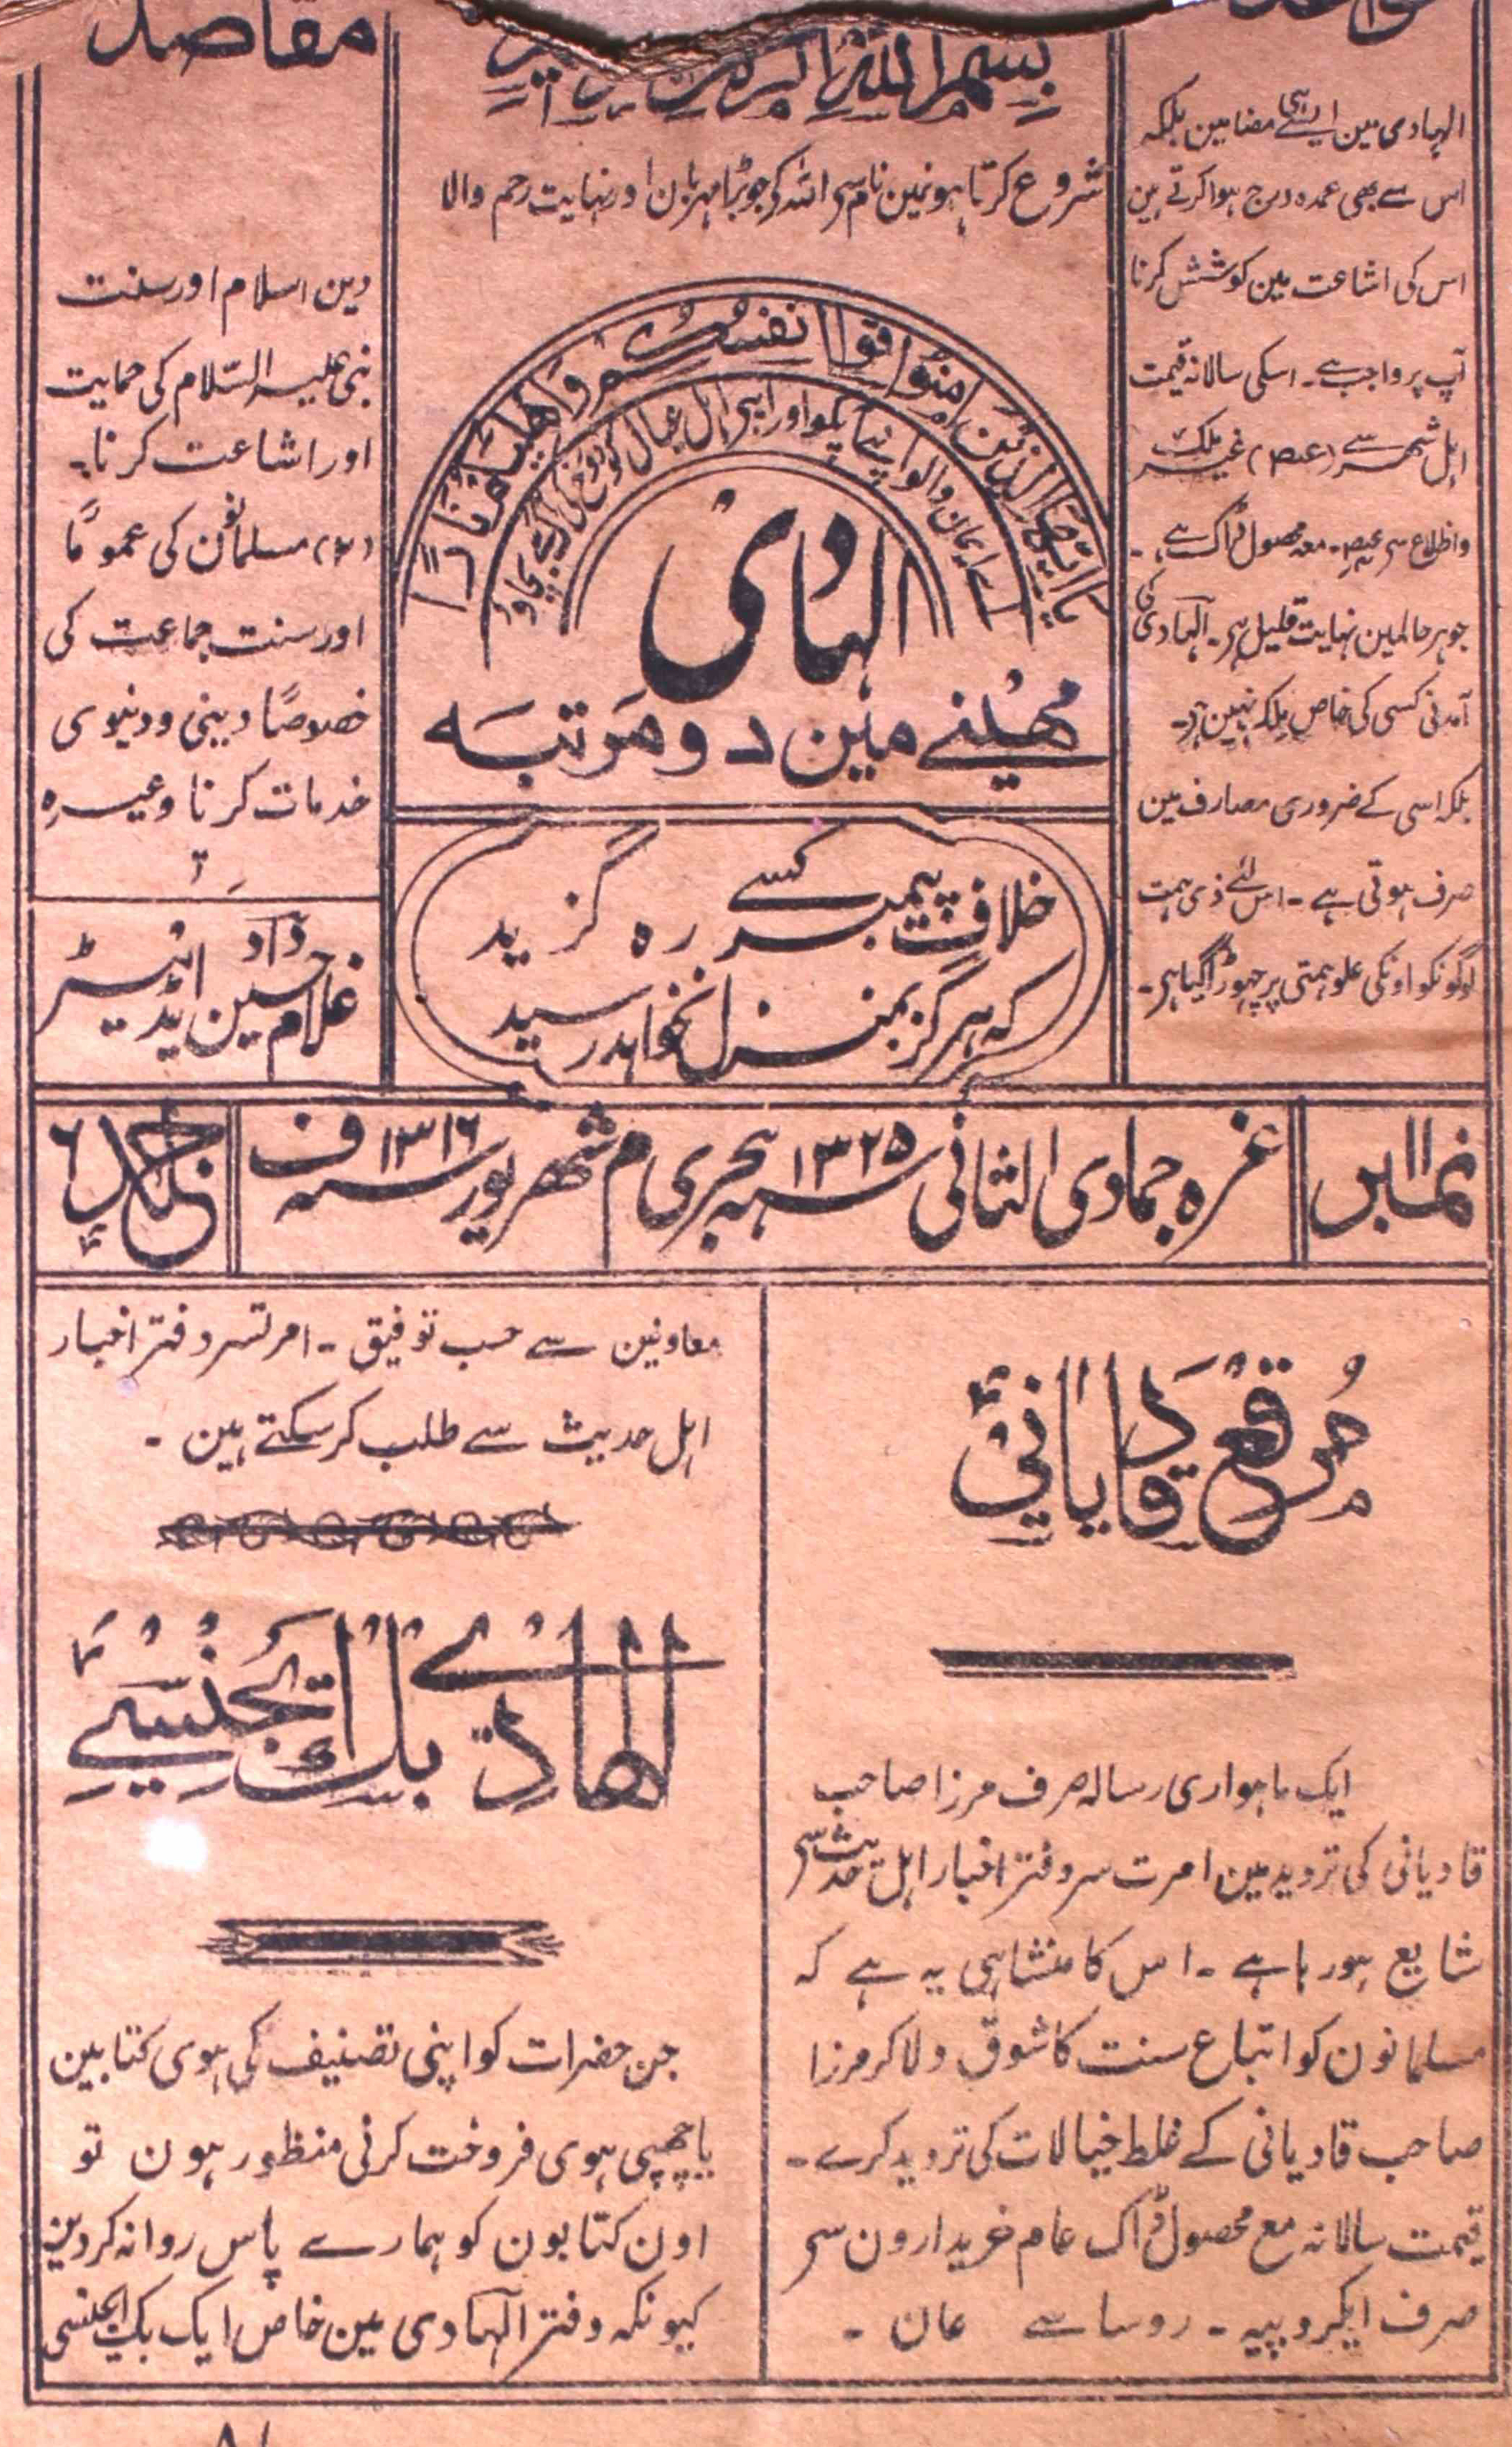 الہادی مین ایسے ہی مضامین بلکہ
اس سے بھی عمدہ درج ہوا کرتے ہین
اس کی اشاعت مین کوشش کرنا
آپ پر واجب ہے۔ اسکی سالانہ قیمت
جو ہر حالمین نہایت قلیل ہی۔ الہادی کی
آمدنی کسی کی خاص ملک نہین ہی۔
بلکہ اسی کے ضروری مصارف مین
صرف ہوتی ہے۔ اس لئے ذی ہمت
لوگونکو اونکی علو ہمتی پر چہوڑا گیا ہی۔
بسم اللہ
شروع کرتا ہونمین نام سی اللہ کی جو بڑا مہربان اور نہایت رحم والا
یا ایھا الذین امنوا قوا انفسکم و اھلیکم نارا
اے ایمان والو اپنے آپکو اور اپنی اہل عیال کو دوزخ کی آگ سے بچاو
الہادی
مھینے مین دو مرتبہ
خلاف پیمبر کسے رہ گزید
کہ ہرگز بمنزل نخواہد رسید
مقاصد
دین اسلام اور سنت
نبی علیہ السّلام کی حمایت
اور اشاعت کرنا۔
(۲) مسلمانون کی عموماً
اور سنت جماعت کی
خصوصاً دینی و دنیوی
خدمات کرنا وغیرہ
غلام حسین داد
ایڈیٹر
نمبر ۱۱
غرہ جمادی الثانی سنہ ۱۳۲۵ ہجری م شھریور سنہ ۱۳۱۶ ف
جلد ۶
مرقع قادیانی
ایک ماہواری رسالہ صرف مرزا صاحب
قادیانی کی تردید مین امرت سر دفتر اخبار اہل حدیث سی
شایع ہو رہا ہے۔ اس کا منشا ہی یہ ہے کہ
مسلمانون کو اتباع سنت کا شوق دلا کر مرزا
صاحب قادیانی کے غلط خیالات کی تردید کرے۔
قیمت سالانہ مع محصول ڈاک عام خریدارون سی
صرف ایکروپیہ۔ روسا سے
معاونین سے حسب توفیق۔ امرتسر دفتر اخبار
اہل حدیث سے طلب کر سکتے ہین۔
الھادے بک ایجنسے
جن حضرات کو اپنی تصنیف کی ہوی کتابین
یا چھپی ہوی فروخت کرنی منظور ہون تو
اون کتابون کو ہمارے پاس روانہ کردین
کیونکہ دفتر الہادی مین خاص ایک بک ایجنسی